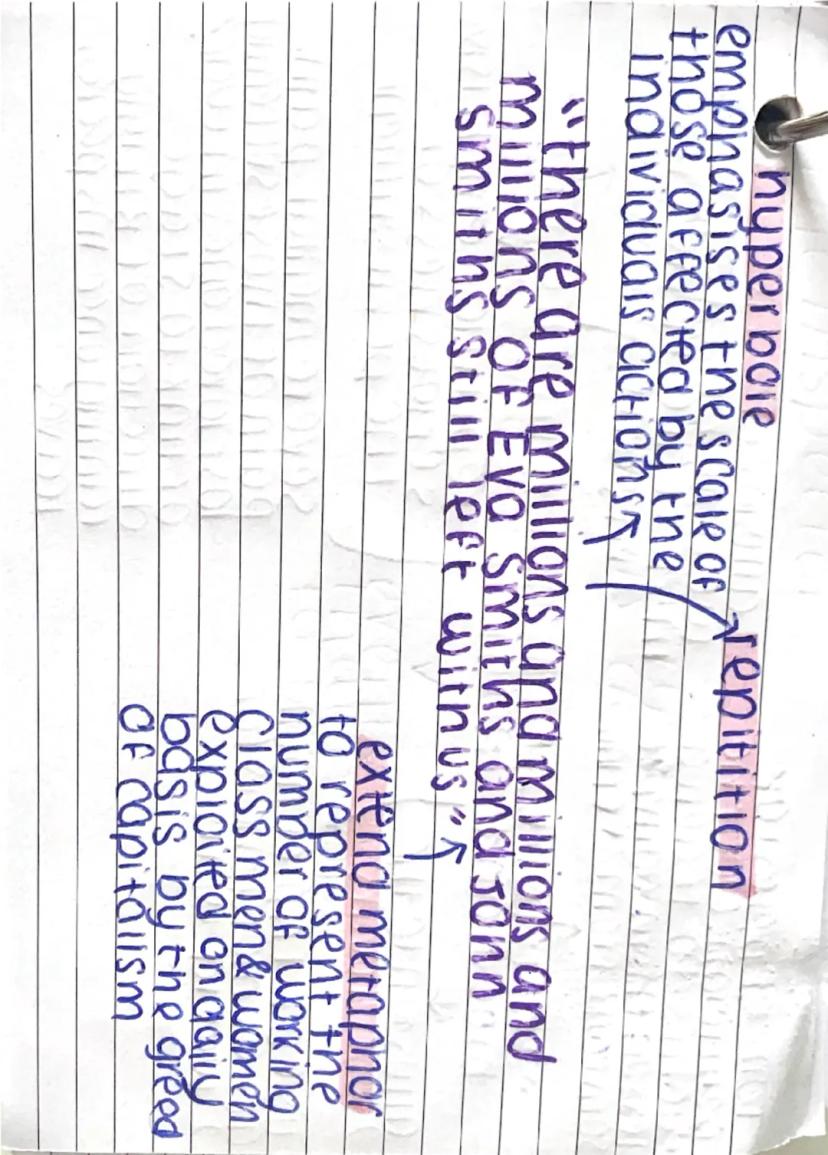 hyperbole
emphasises the scale of
those affected by the
individuals actions
repitition
"there are millions and millions and
millions of Eva Smiths and John
smiths still left with us"
extend metaphor
to represent the
number of working
class men & women
exploited on daily
basis by the greed
of capitalism